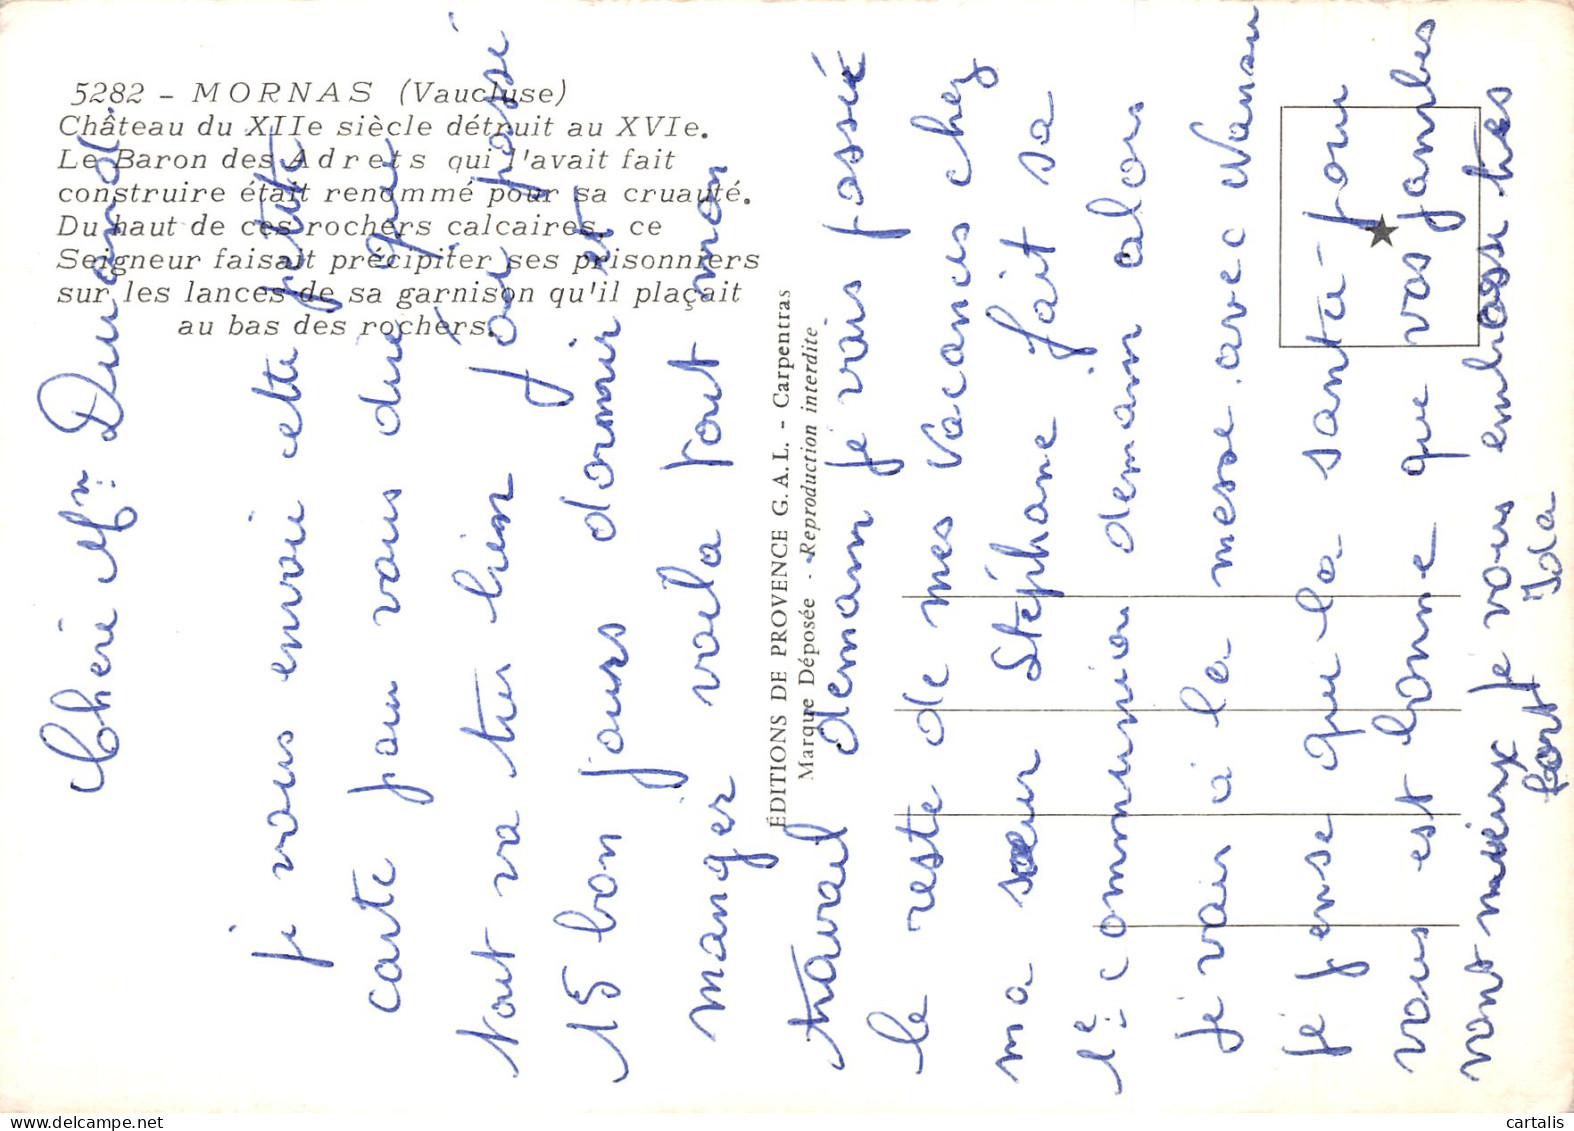 5282 - MORNAS (Vaucluse)
Château du XIIe siècle détruit au XVIe.
Le Baron des Adrets qui l'avait fait
construire était renommé pour sa cruauté.
Du haut de ces rochers calcaires, ce
Seigneur faisait précipiter ses prisonniers
sur les lances de sa garnison qu'il plaçait
au bas des rochers.
ÉDITIONS DE PROVENCE G.A.L. - Carpentras
Marque Déposée - Reproduction interdite
Chère Mm: Durand
je vous envoie cette petite
carte pour vous dire que
tout va très bien j'ai passé
15 bon jours dormir et
manger voila tout mon
travail demain je vais passé
le reste de mes vacances chez
ma sœur Stéphane fait sa
1e communion demain alors
je vais à la messe avec
je pense que la santé pour
vous est bonne que vos jambes
vont mieux je vous embrasse très
fort Ida
cartalis
www.delcampe.net